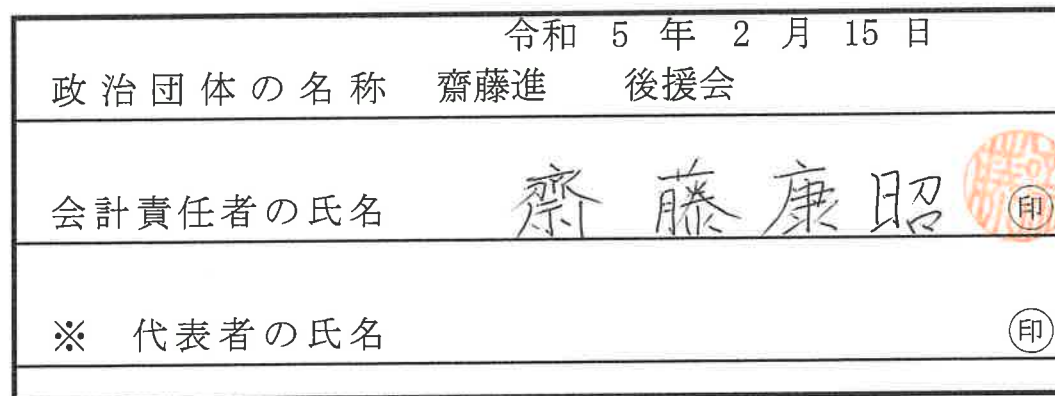 令和 5 年 2 月 15 日
政治団体の名称 齋藤進 後援会
会計責任者の氏名 齋藤康昭 ㊞
※ 代表者の氏名 ㊞